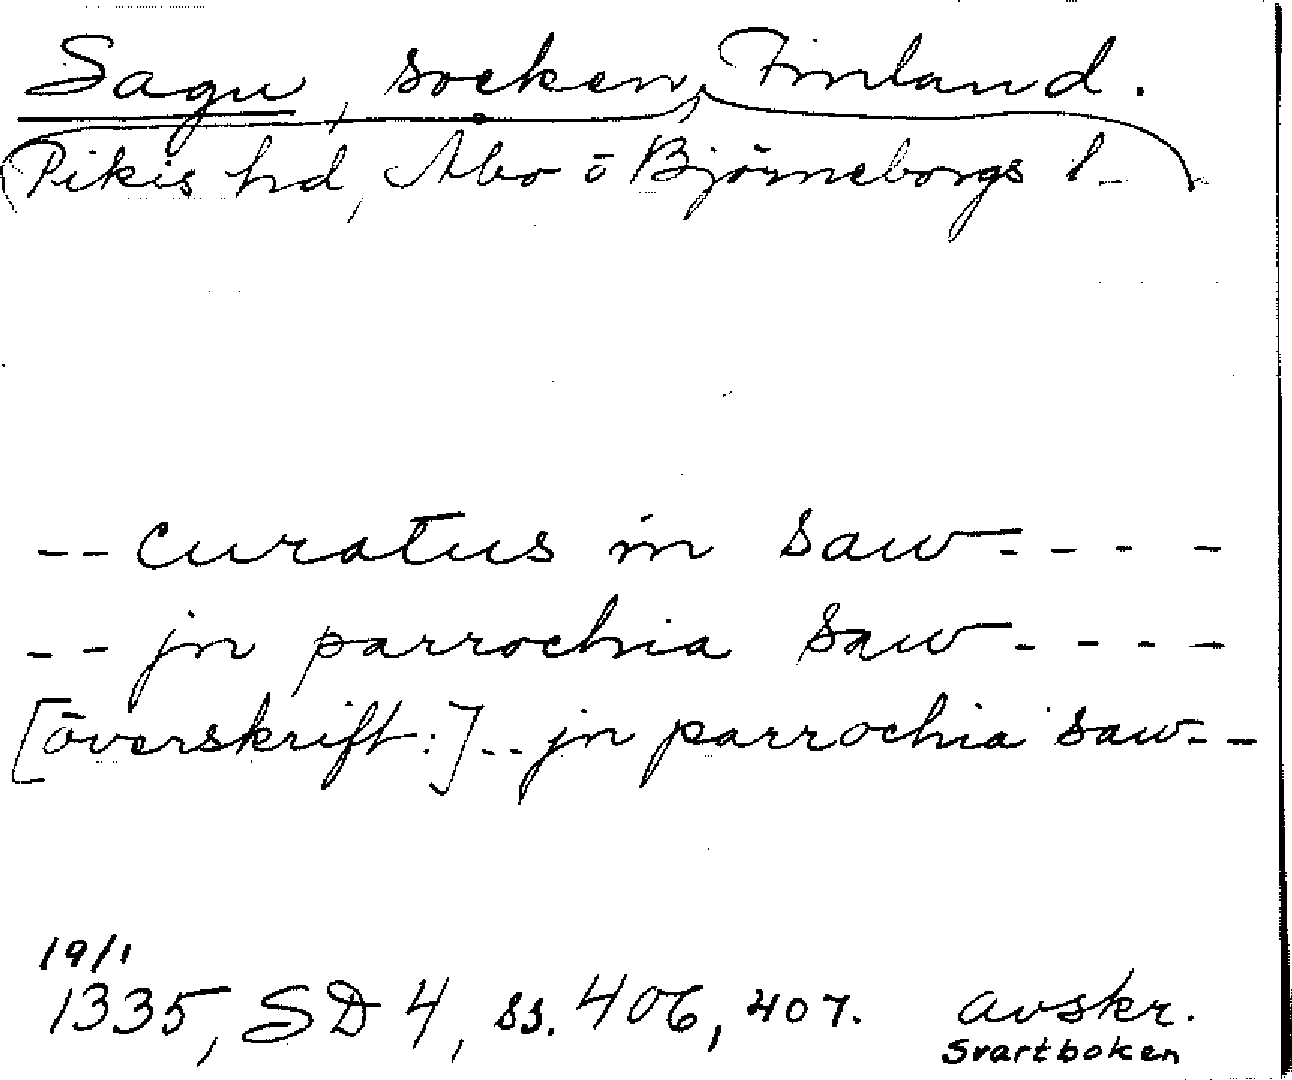 Sagu, socken, Finland.
Pikis hd, Åbo o Björneborgs l-
-- curatus in saw - - - -
-- jn parrochia saw - - - -
[överskrift:] -- jn parrochia saw - -
19/1
1335, SD 4, ss. 406, 407. avskr.
Svartboken